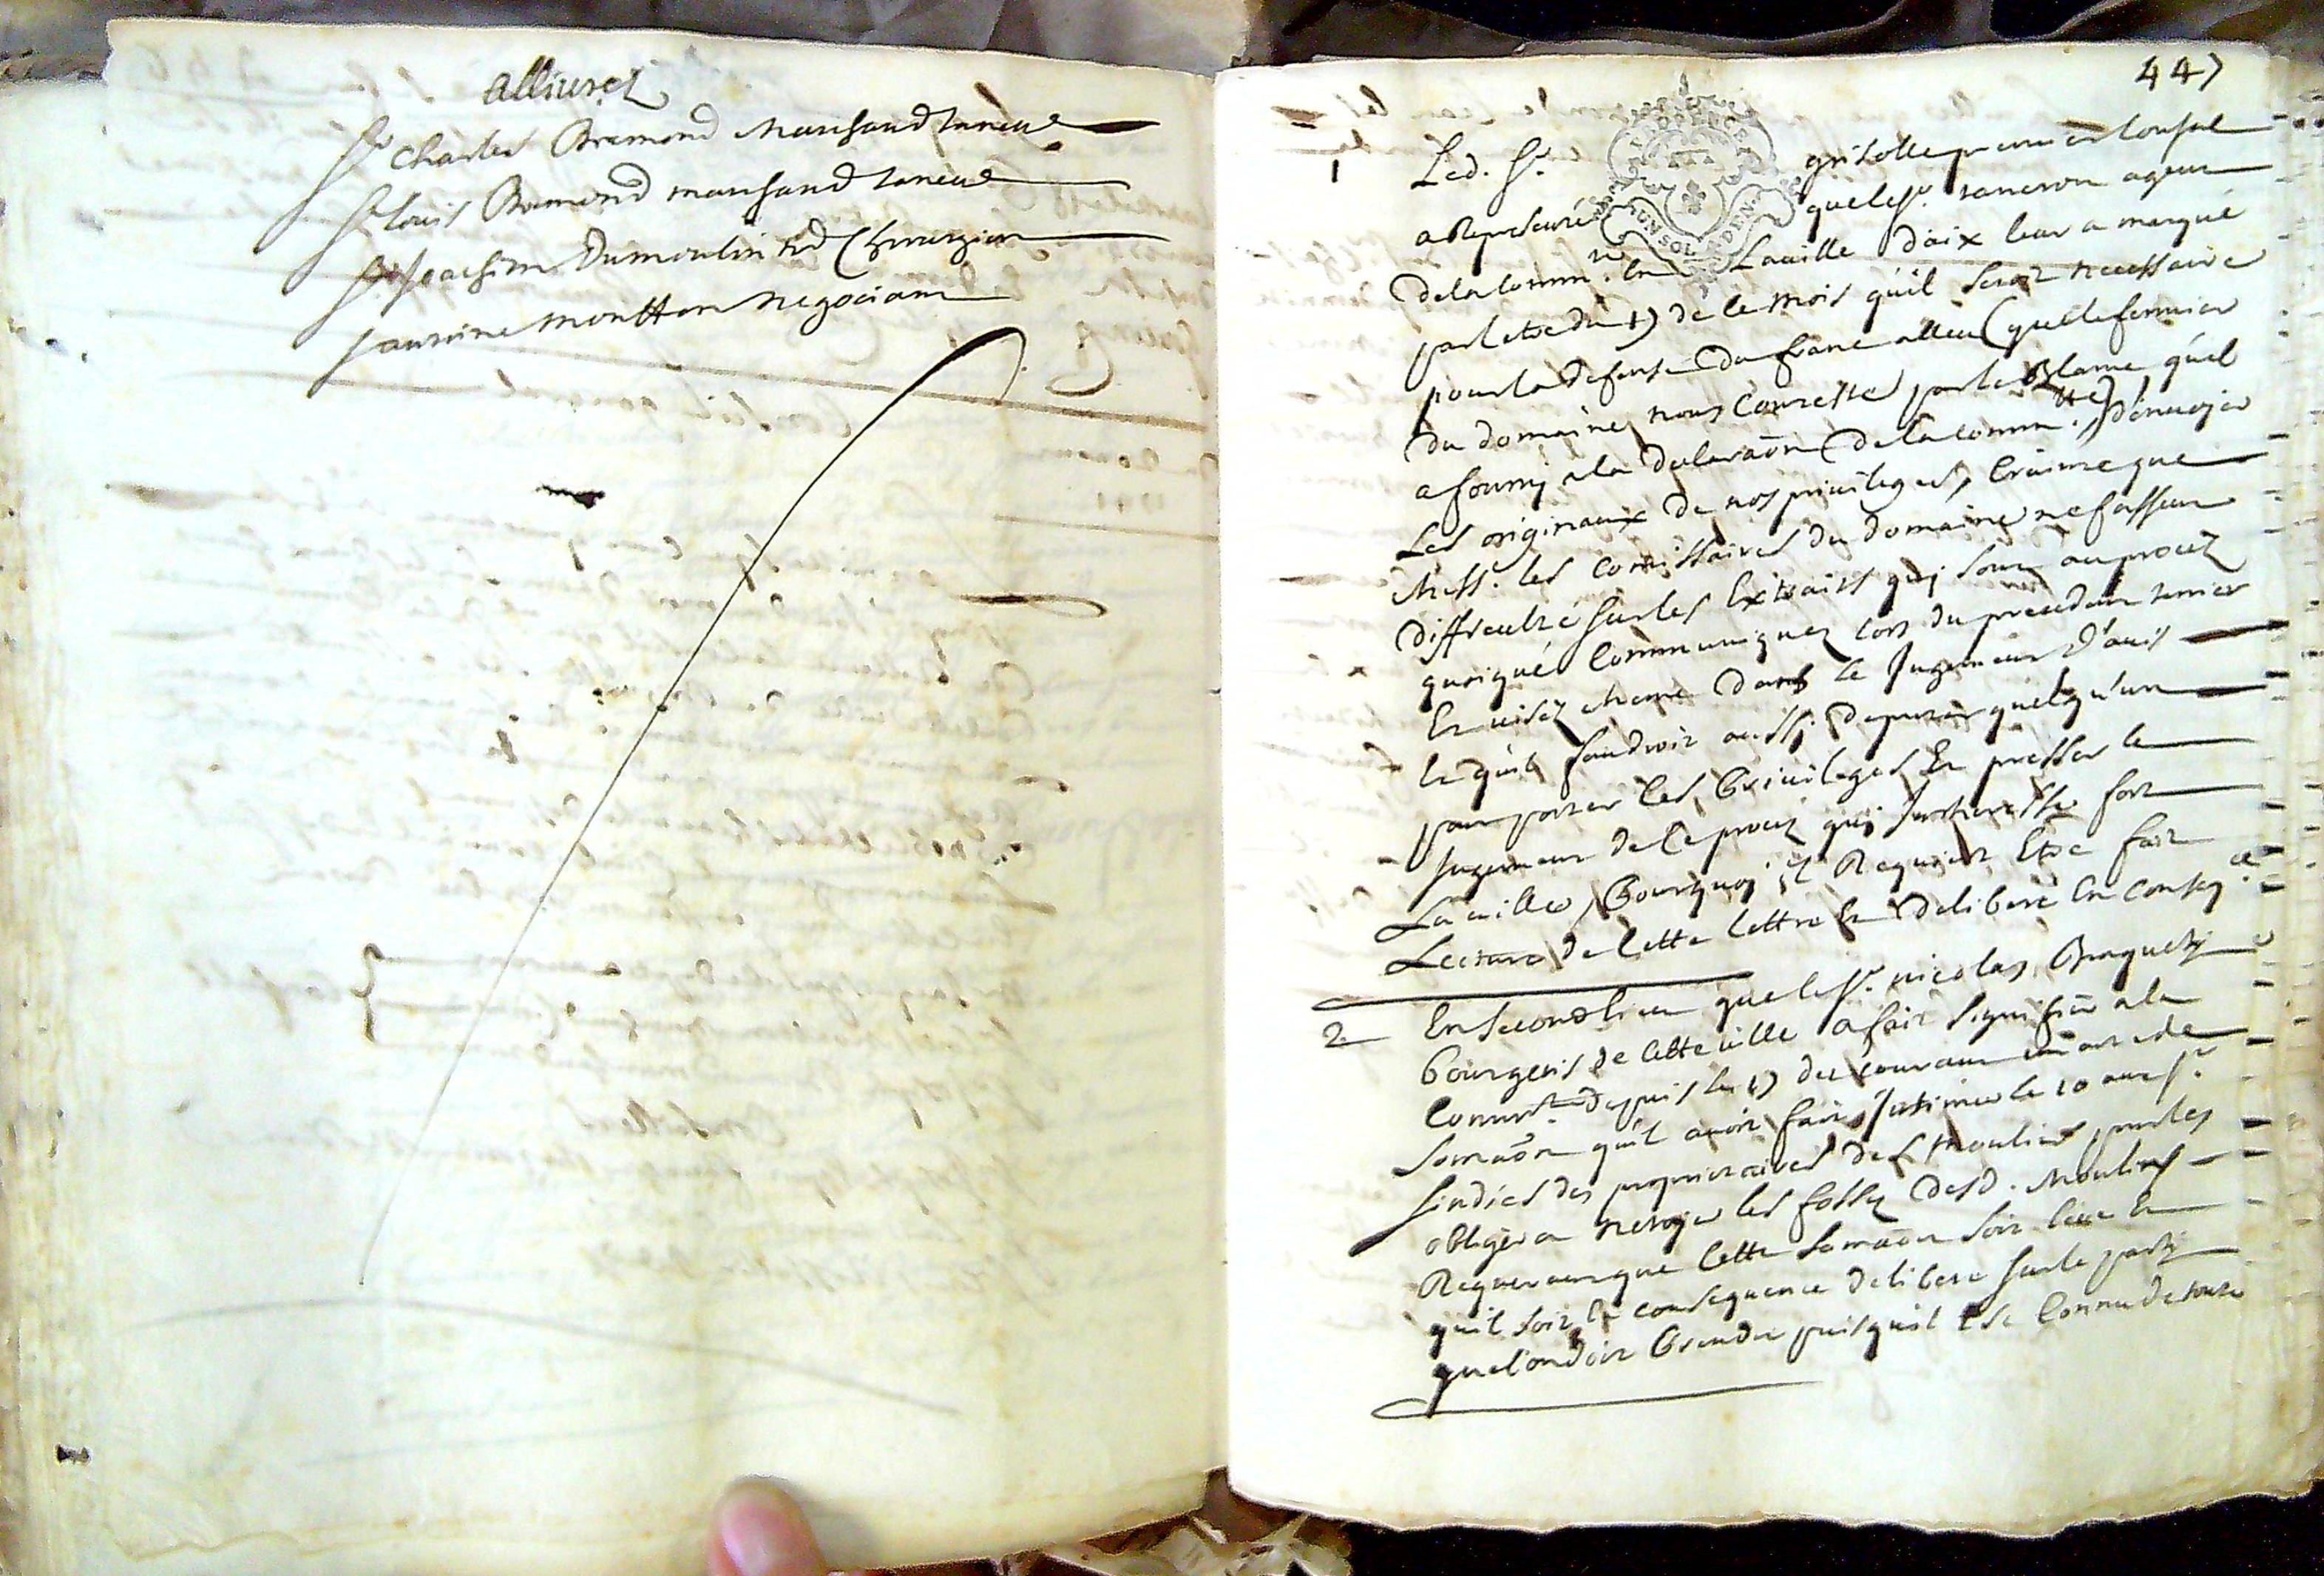 allivrez
Sr Charles Bremond Marchand taneur
Sr louis Bremond marchand taneur
Sr Joachim Dumoulin md Chirurgien
antoine moutton negociant
447
1 Led. Sr. grisolle premier Consul
a Representé UN SOL LE DEN que le Sr. agent
de la Comm.té En La ville d'aix leur a marqué
par letre du 17 de Ce mois qu'il Seroit necessaire
pour la defense du franc alleu (que le fermier
du domaine nous Conteste par le Blame quel
a fourny a la declaraõn de la Comm.tte) d'envoyer
Les originaux de nos privileges, Crainte que
Mess.rs les Comissaires du domaine ne fassent
difficulté sur les Extraits quj sont au procez
quoique Communiquez lors du precedent terrier
Et visez meme dans le Jugement d'avis
Et quil faudroit aussj deputer quelqu'un
pour porter les Privileges Et presser le
Jugement de Ce procez quj Jntheresse fort
La ville, Pourquoj il Requiert Etre fait
Lecture de Cette lettre Et deliberé En Conseq.ce
2 En Second lieu que le Sr. nicolas Braquety
Bourgeois de Cette ville a fait Signifier a la
Commté depuis le 17 du Courant un acte de
Somaõn quil avoit fait Jntimer le 10 aux Srs
sindics des proprietaires des Moulins pour les
obliger a netoyer les fossez desd. Moulins
Requerant que Cette Somaõn soit leue Et
quil soit En consequence delibere sur le party
que l'on doit Prendre puisquil Est Connu de toute